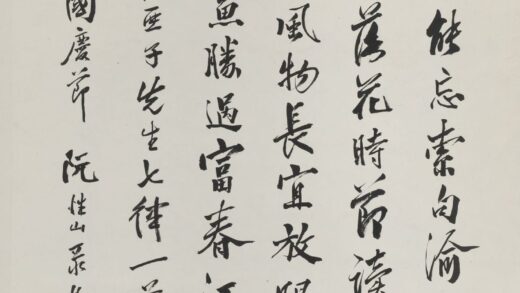 能忘索句渝
落花時節讀
風物長宜放眼
魚勝過富春江
亞子先生七律一首
國慶節 阮性山錄